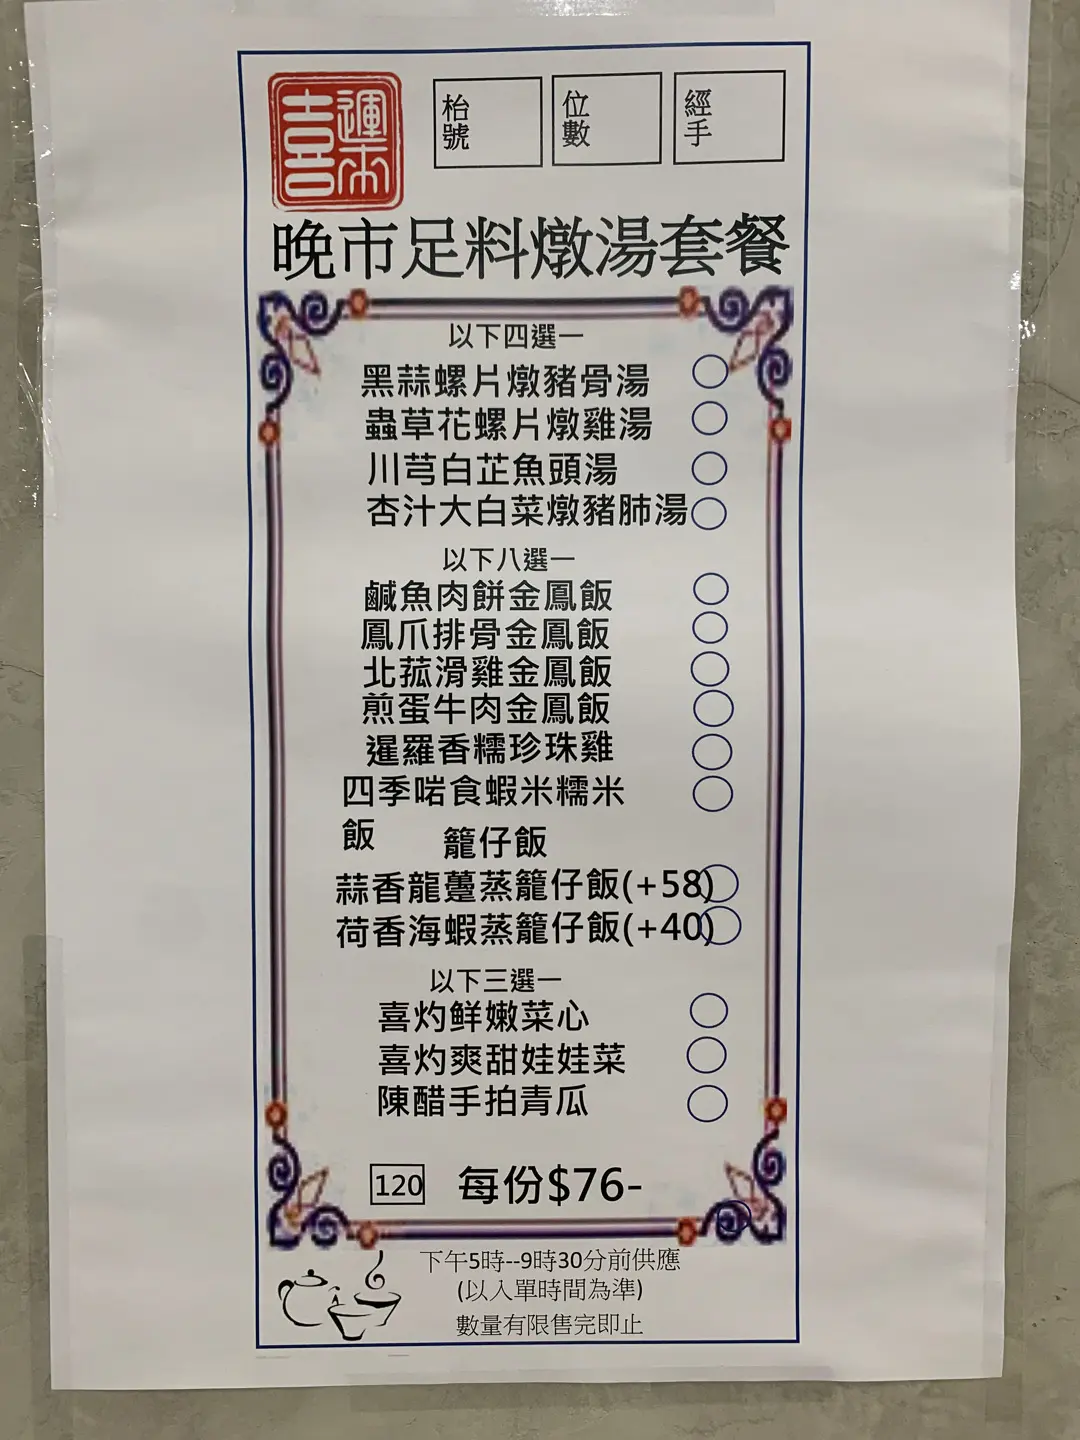 喜運來
枱號
位數
經手
晚市足料燉湯套餐
以下四選一
黑蒜螺片燉豬骨湯
蟲草花螺片燉雞湯
川芎白芷魚頭湯
杏汁大白菜燉豬肺湯
以下八選一
鹹魚肉餅金鳳飯
鳳爪排骨金鳳飯
北菰滑雞金鳳飯
煎蛋牛肉金鳳飯
暹羅香糯珍珠雞
四季啱食蝦米糯米
飯 籠仔飯
蒜香龍躉蒸籠仔飯(+58)
荷香海蝦蒸籠仔飯(+40)
以下三選一
喜灼鮮嫩菜心
喜灼爽甜娃娃菜
陳醋手拍青瓜
120 每份$76-
下午5時--9時30分前供應
(以入單時間為準)
數量有限售完即止